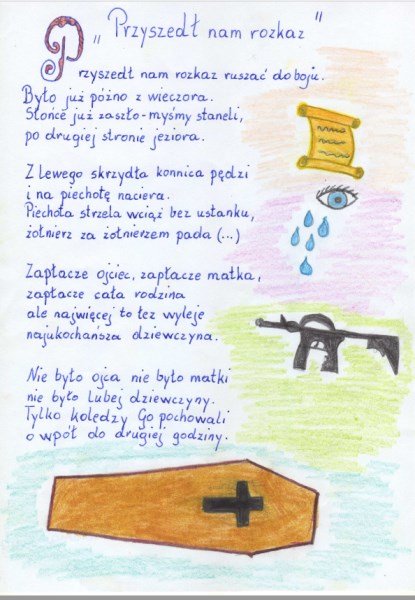 „Przyszedł nam rozkaz"
Przyszedł nam rozkaz ruszać do boju.
Było już późno z wieczora.
Słońce już zaszło-myśmy staneli,
po drugiej stronie jeziora.
Z lewego skrzydła konnica pędzi
i na piechotę naciera.
Piechota strzela wciąż bez ustanku,
żołnierz za żołnierzem pada (...)
Zapłacze ojciec, zapłacze matka,
zapłacze cała rodzina
ale najwięcej to łez wyleje
najukochańsza dziewczyna.
Nie było ojca nie było matki
nie było lubej dziewczyny.
Tylko koledzy Go pochowali
o wpół do drugiej godziny.